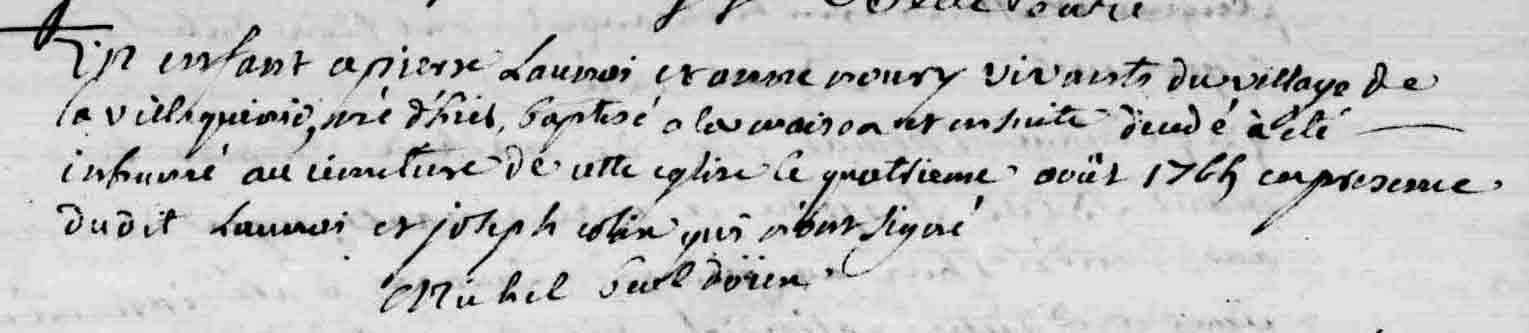 Un enfant a pierre Launai et anne noury vivants du village de
la villeguienic, né d'hier, baptisé a la maison et ensuite decedé à eté
inhumé au cimetiere de cette eglise le quatrieme août 1764 en presence
dudit Launai et joseph colin qui n'ont signé
Michel doïen